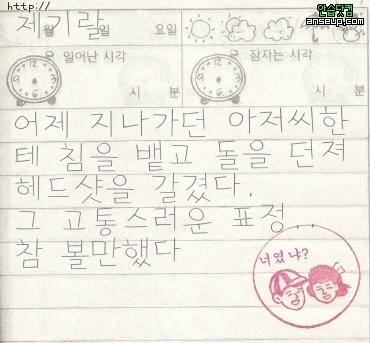 http://
안습닷컴
anseup.com
제기랄
월 일 요일
일어난 시각
잠자는 시각
시 분
시 분
어제 지나가던 아저씨한
테 침을 뱉고 돌을 던져
헤드샷을 갈겼다.
그 고통스러운 표정..
참 볼만했다
너였냐?